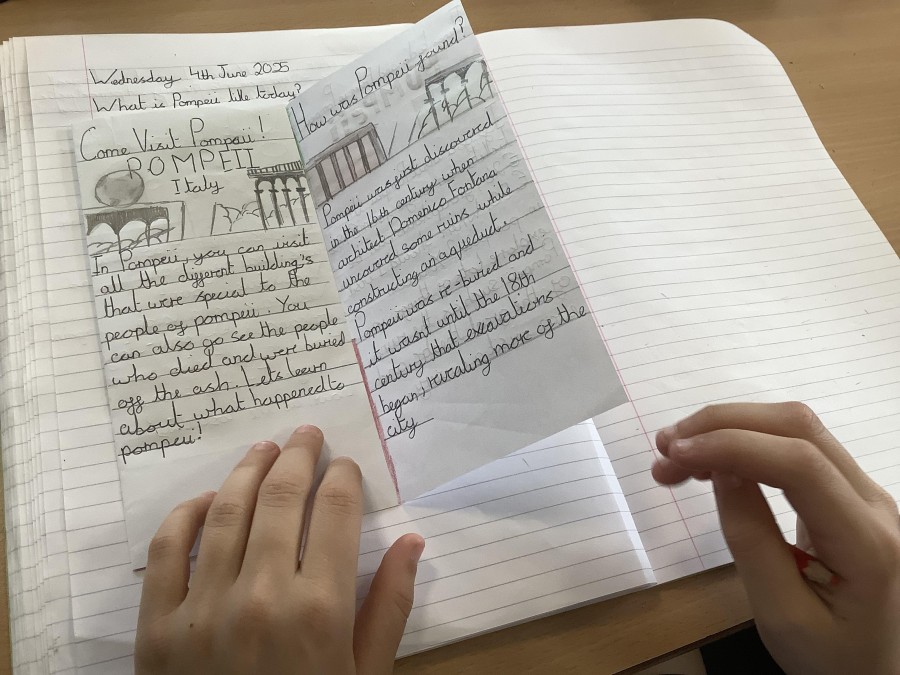 Wednesday 4th June 2025
What is Pompeii like today?
Come Visit Pompeii!
POMPEII
Italy
In Pompeii, you can visit
all the different building's
that were special to the
people of pompeii. You
can also go see the people
who died and were buried
off the ash. Lets learn
about what happened to
pompeii!
How was Pompeii found?
Pompeii was just discovered
in the 16th century when
architect Domenico Fontana
uncovered some ruins while
constructing an aqueduct.
Pompeii was re-buried and
it wasnt until the 18th
century that excavations
began, revealing more of the
city